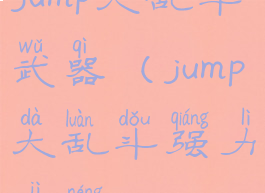 jump大乱斗
wǔ qì
武器（jump
dà luàn dǒu qiáng lì
大乱斗强力